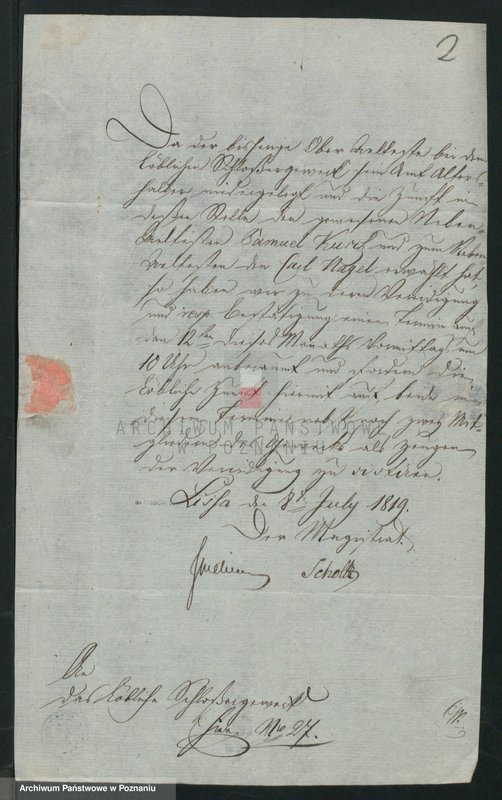 2
Da der bisherige Ober Aelteste bei dem
Löblichen Schloßergewerk sein Amt Alters-
halber niedergelegt und die Zunft in
deßen Stelle den gewesenen Neben-
Aeltesten Samuel und zum Neben
Aeltesten den Carl Nagel erwählt hat,
so haben wir zu deren Vereidigung
und resp. Bestätigung einen Termin auf
den 12ten dieses Monaths Vormittags um
10 Uhr anberaumt und die
Löbliche Zunft hiermit auf, beide in
diesem Termine nebst noch zwey Mit-
gliedern des Gewerks als Zeugen
der Vereidigung zu
Lissa den 8t July 1819.
Der Magistrat
Scholtz
An
das Löbliche Schloßergewerk
hier
No 27.
ARCHIWUM PAŃSTWOWE
W POZNANIU
Archiwum Państwowe w Poznaniu